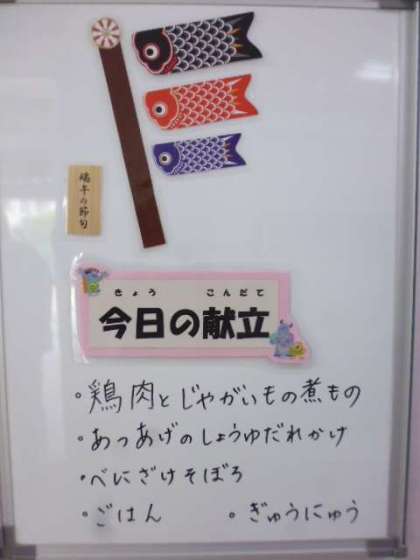 端午の節句
きょう こんだて
今日の献立
・鶏肉とじゃがいもの煮もの
・あつあげのしょうゆだれかけ
・べにざけそぼろ
・ごはん ・ぎゅうにゅう